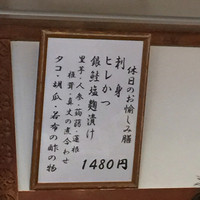 休日のお愉しみ膳
刺身
ヒレかつ
銀鮭塩麹漬け
里芋・人参・蒟蒻・蓮根
椎茸・真丈の煮合わせ
タコ・胡瓜・若布の酢の物
1480円